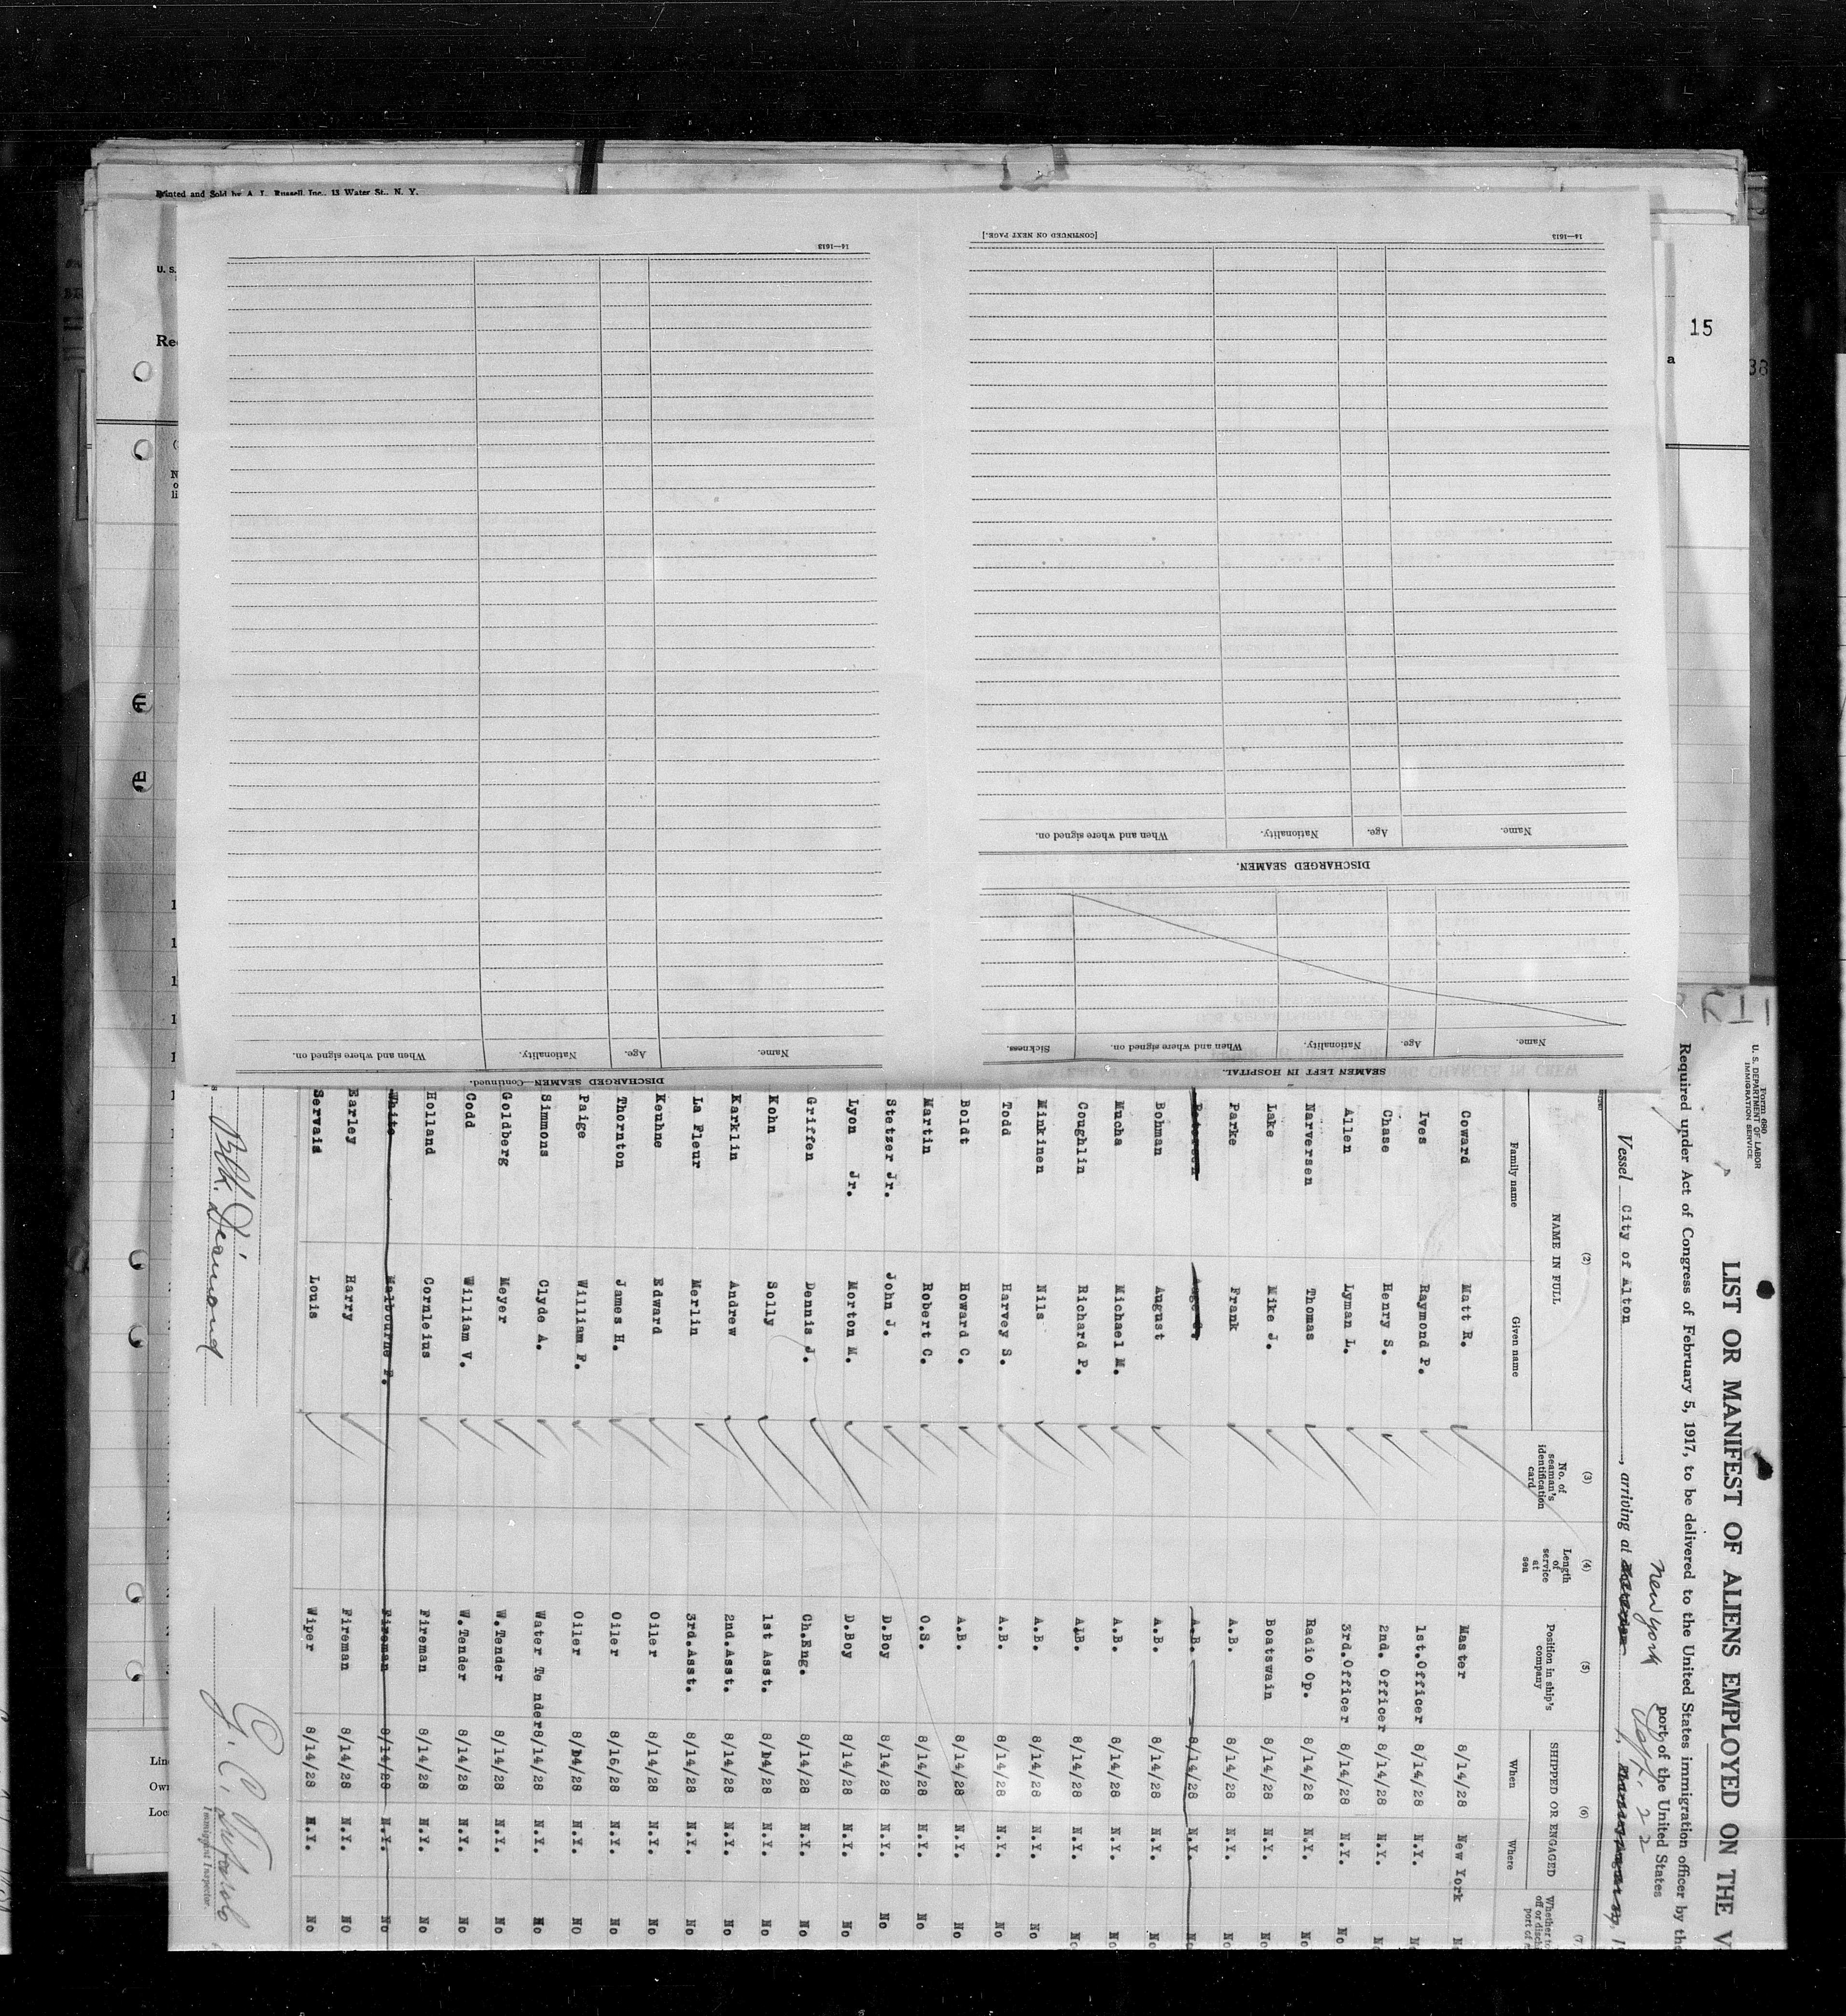 Printed and Sold by A. L. Russell, Inc., 13 Water St., N. Y.
U. S.
15
a
38
14—1613
[CONTINUED ON NEXT PAGE.]
14—1613
SEAMEN LEFT IN HOSPITAL.
Name. Age. Nationality. When and where signed on. Sickness.
DISCHARGED SEAMEN.
Name. Age. Nationality. When and where signed on.
DISCHARGED SEAMEN—Continued.
Name. Age. Nationality. When and where signed on.
Form 680
U. S. DEPARTMENT OF LABOR
IMMIGRATION SERVICE
LIST OR MANIFEST OF ALIENS EMPLOYED ON THE V
Required under Act of Congress of February 5, 1917, to be delivered to the United States immigration officer by the
port of the United States
Vessel City of Alton, arriving at New York Sept. 22
(2) (3) (4) (5) (6) (7)
NAME IN FULL No. of seaman's identification card Length of service at sea Position in ship's company SHIPPED OR ENGAGED
Family name Given name When Where
Coward Matt R. Master 8/14/28 New York
Ives Raymond P. 1st.Officer 8/14/28 N.Y. No
Chase Henry S. 2nd. Officer 8/14/28 N.Y. No
Allen Lyman L. 3rd.Officer 8/14/28 N.Y. No
Narversen Thomas Radio Op. 8/14/28 N.Y. No
Lake Mike J. Boatswain 8/14/28 N.Y. No
Parke Frank A.B. 8/14/28 N.Y. No
A.B. 8/14/28 N.Y. No
Bohman August A.B. 8/14/28 N.Y. No
Mucha Michael M. A.B. 8/14/28 N.Y. No
Coughlin Richard P. A.B. 8/14/28 N.Y. No
Minkinen Nils A.B. 8/14/28 N.Y. No
Todd Harvey S. A.B. 8/14/28 N.Y. No
Boldt Howard C. A.B. 8/14/28 N.Y. No
Martin Robert C. O.S. 8/14/28 N.Y. No
Stetzer Jr. John J. D.Boy 8/14/28 N.Y. No
Lyon Jr. Morton M. D.Boy 8/14/28 N.Y. No
Griffen Dennis J. Ch.Eng. 8/14/28 N.Y. No
Kohn Solly 1st Asst. 8/14/28 N.Y. No
Karklin Andrew 2nd.Asst. 8/14/28 N.Y. No
La Fleur Merlin 3rd.Asst. 8/14/28 N.Y. No
Keuhne Edward Oiler 8/14/28 N.Y. No
Thornton James H. Oiler 8/16/28 N.Y. No
Paige William F. Oiler 8/14/28 N.Y. No
Simmons Clyde A. Water Te nder 8/14/28 N.Y. No
Goldberg Meyer W.Tender 8/14/28 N.Y. No
Codd William V. W.Tender 8/14/28 N.Y. No
Holland Cornleius Fireman 8/14/28 N.Y. No
White Melbourne F. Fireman 8/14/28 N.Y. No
Earley Harry Fireman 8/14/28 N.Y. No
Servais Louis Wiper 8/14/28 N.Y. No
Immigrant Inspector.